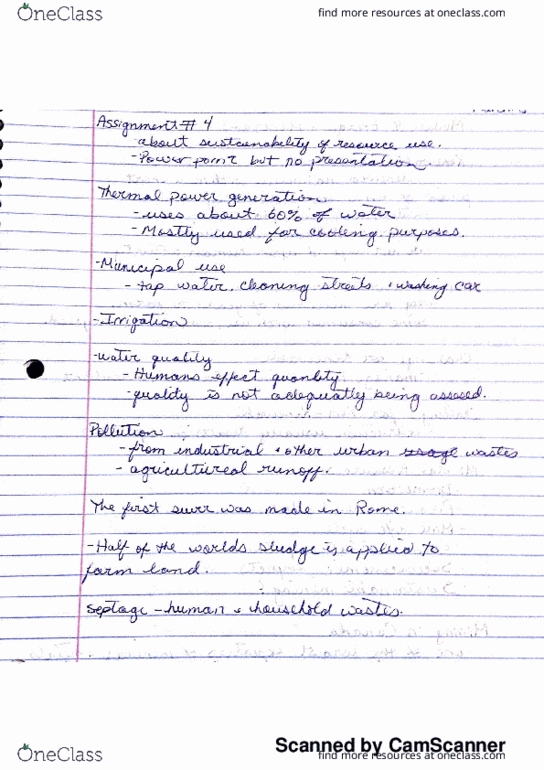 OneClass
find more resources at oneclass.com
Assignment # 4
- about sustainability of resource use.
- Power point but no presentation
Thermal power generation
- uses about 60% of water
- Mostly used for cooling purposes.
- Municipal use
- tap water, cleaning streets, washing car
- Irrigation
- water quality
- Humans effect quantity
- quality is not adequately being assesed.
Pollution
- from industrial + other urban wastes
- agricultureal runoff.
The first sewer was made in Rome.
- Half of the worlds sludge is applied to
farm land.
Septage - human + household wastes.
Mining in Canada
Scanned by CamScanner
OneClass
find more resources at oneclass.com